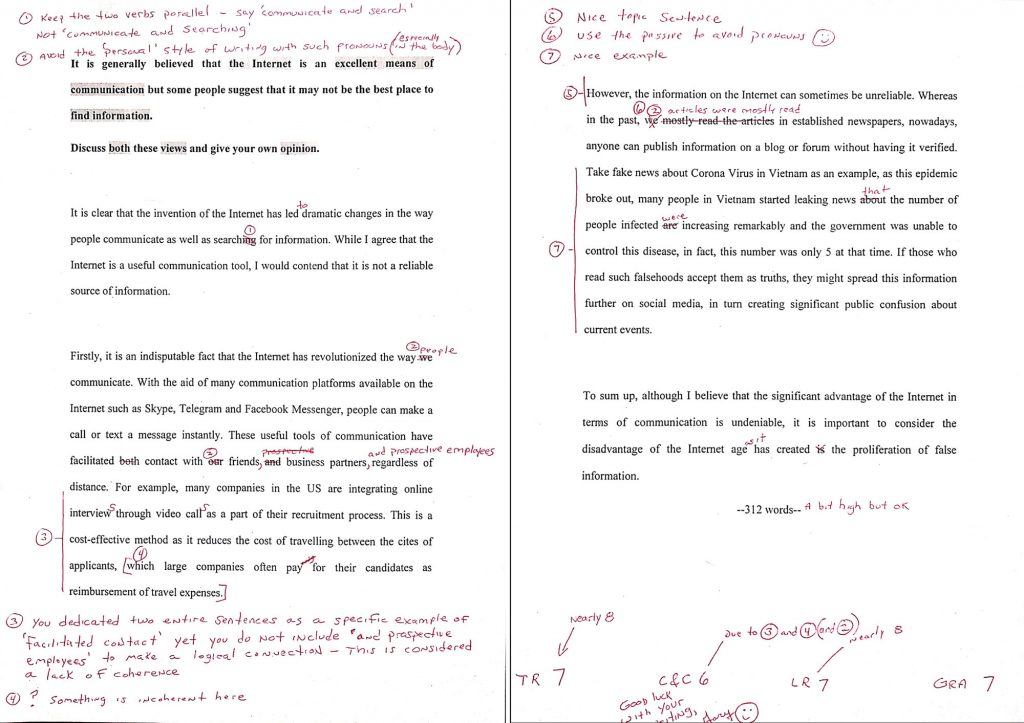 ① Keep the two verbs parallel – say 'communicate and search'
Not 'communicate and searching'
② Avoid the 'personal' style of writing with such pronouns (especially in the body)
It is generally believed that the Internet is an excellent means of
communication but some people suggest that it may not be the best place to
find information.
Discuss both these views and give your own opinion.
It is clear that the invention of the Internet has led to dramatic changes in the way
①
people communicate as well as searching for information. While I agree that the
Internet is a useful communication tool, I would contend that it is not a reliable
source of information.
② people
Firstly, it is an indisputable fact that the Internet has revolutionized the way we
communicate. With the aid of many communication platforms available on the
Internet such as Skype, Telegram and Facebook Messenger, people can make a
call or text a message instantly. These useful tools of communication have
② prospective and prospective employees
facilitated both contact with our friends, and business partners, regardless of
distance. For example, many companies in the US are integrating online
interviews through video calls as a part of their recruitment process. This is a
③ cost-effective method as it reduces the cost of travelling between the cites of
④
applicants, [which large companies often pay for their candidates as
reimbursement of travel expenses.]
③ You dedicated two entire sentences as a specific example of
'facilitated contact' yet you do not include 'and prospective
employees' to make a logical connection – This is considered
a lack of coherence
④ ? Something is incoherent here
⑤ Nice topic sentence
⑥ Use the passive to avoid pronouns
⑦ Nice example
⑤ However, the information on the Internet can sometimes be unreliable. Whereas
⑥ ② articles were mostly read
in the past, we mostly read the articles in established newspapers, nowadays,
anyone can publish information on a blog or forum without having it verified.
Take fake news about Corona Virus in Vietnam as an example, as this epidemic
that
broke out, many people in Vietnam started leaking news about the number of
were
people infected are increasing remarkably and the government was unable to
⑦ control this disease, in fact, this number was only 5 at that time. If those who
read such falsehoods accept them as truths, they might spread this information
further on social media, in turn creating significant public confusion about
current events.
To sum up, although I believe that the significant advantage of the Internet in
terms of communication is undeniable, it is important to consider the
as it
disadvantage of the Internet age has created is the proliferation of false
information.
--312 words-- A bit high but ok
Nearly 8
Due to ③ and ④ (and ②)
Nearly 8
TR 7 C&C 6 LR 7 GRA 7
Good luck
with your